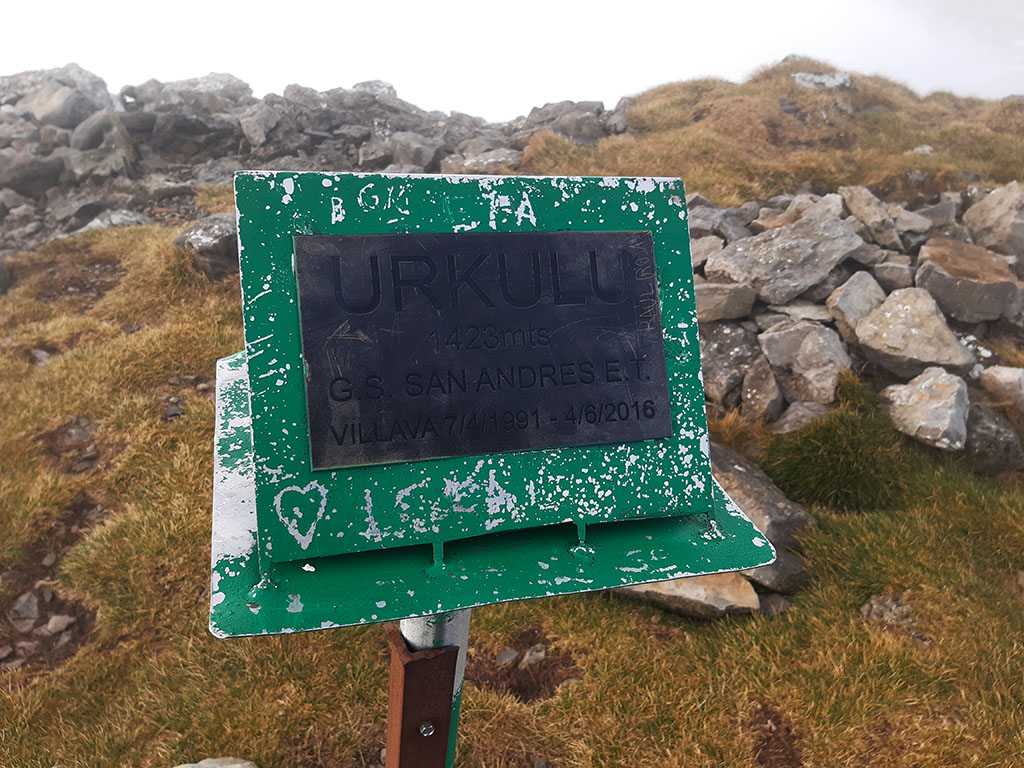 BGK FA
URKULU
1423mts
G.S. SAN ANDRES E.T.
VILLAVA 7/4/1991 - 4/6/2016